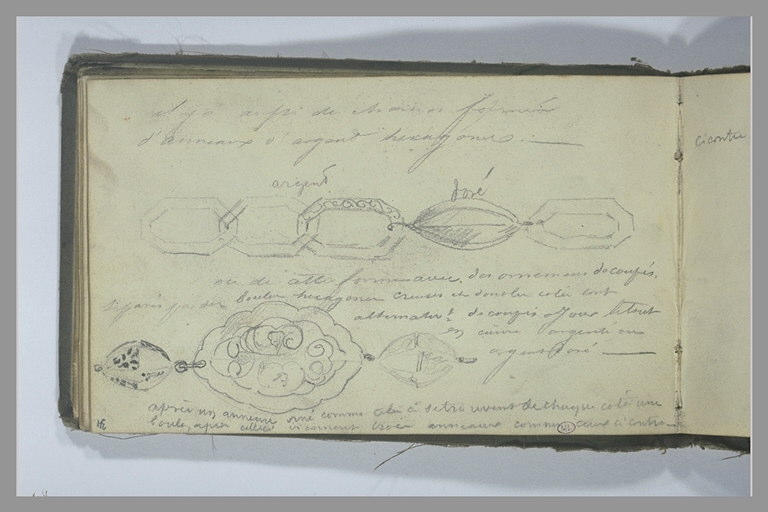 il y a aussi de chaines formées
d'anneaux d'argent hexagones. —
argent
doré
ci contre
ou de cette forme avec des ornemens découpés,
séparés par des boules hexagones creuses et dont les cotés sont
alternatt. découpés à jour le tout
en cuivre argenté ou
argent doré —
après un anneau orné comme celui ci se trouvent de chaque coté une
boule, après celle ci viennent trois anneaux comme ceux ci contre